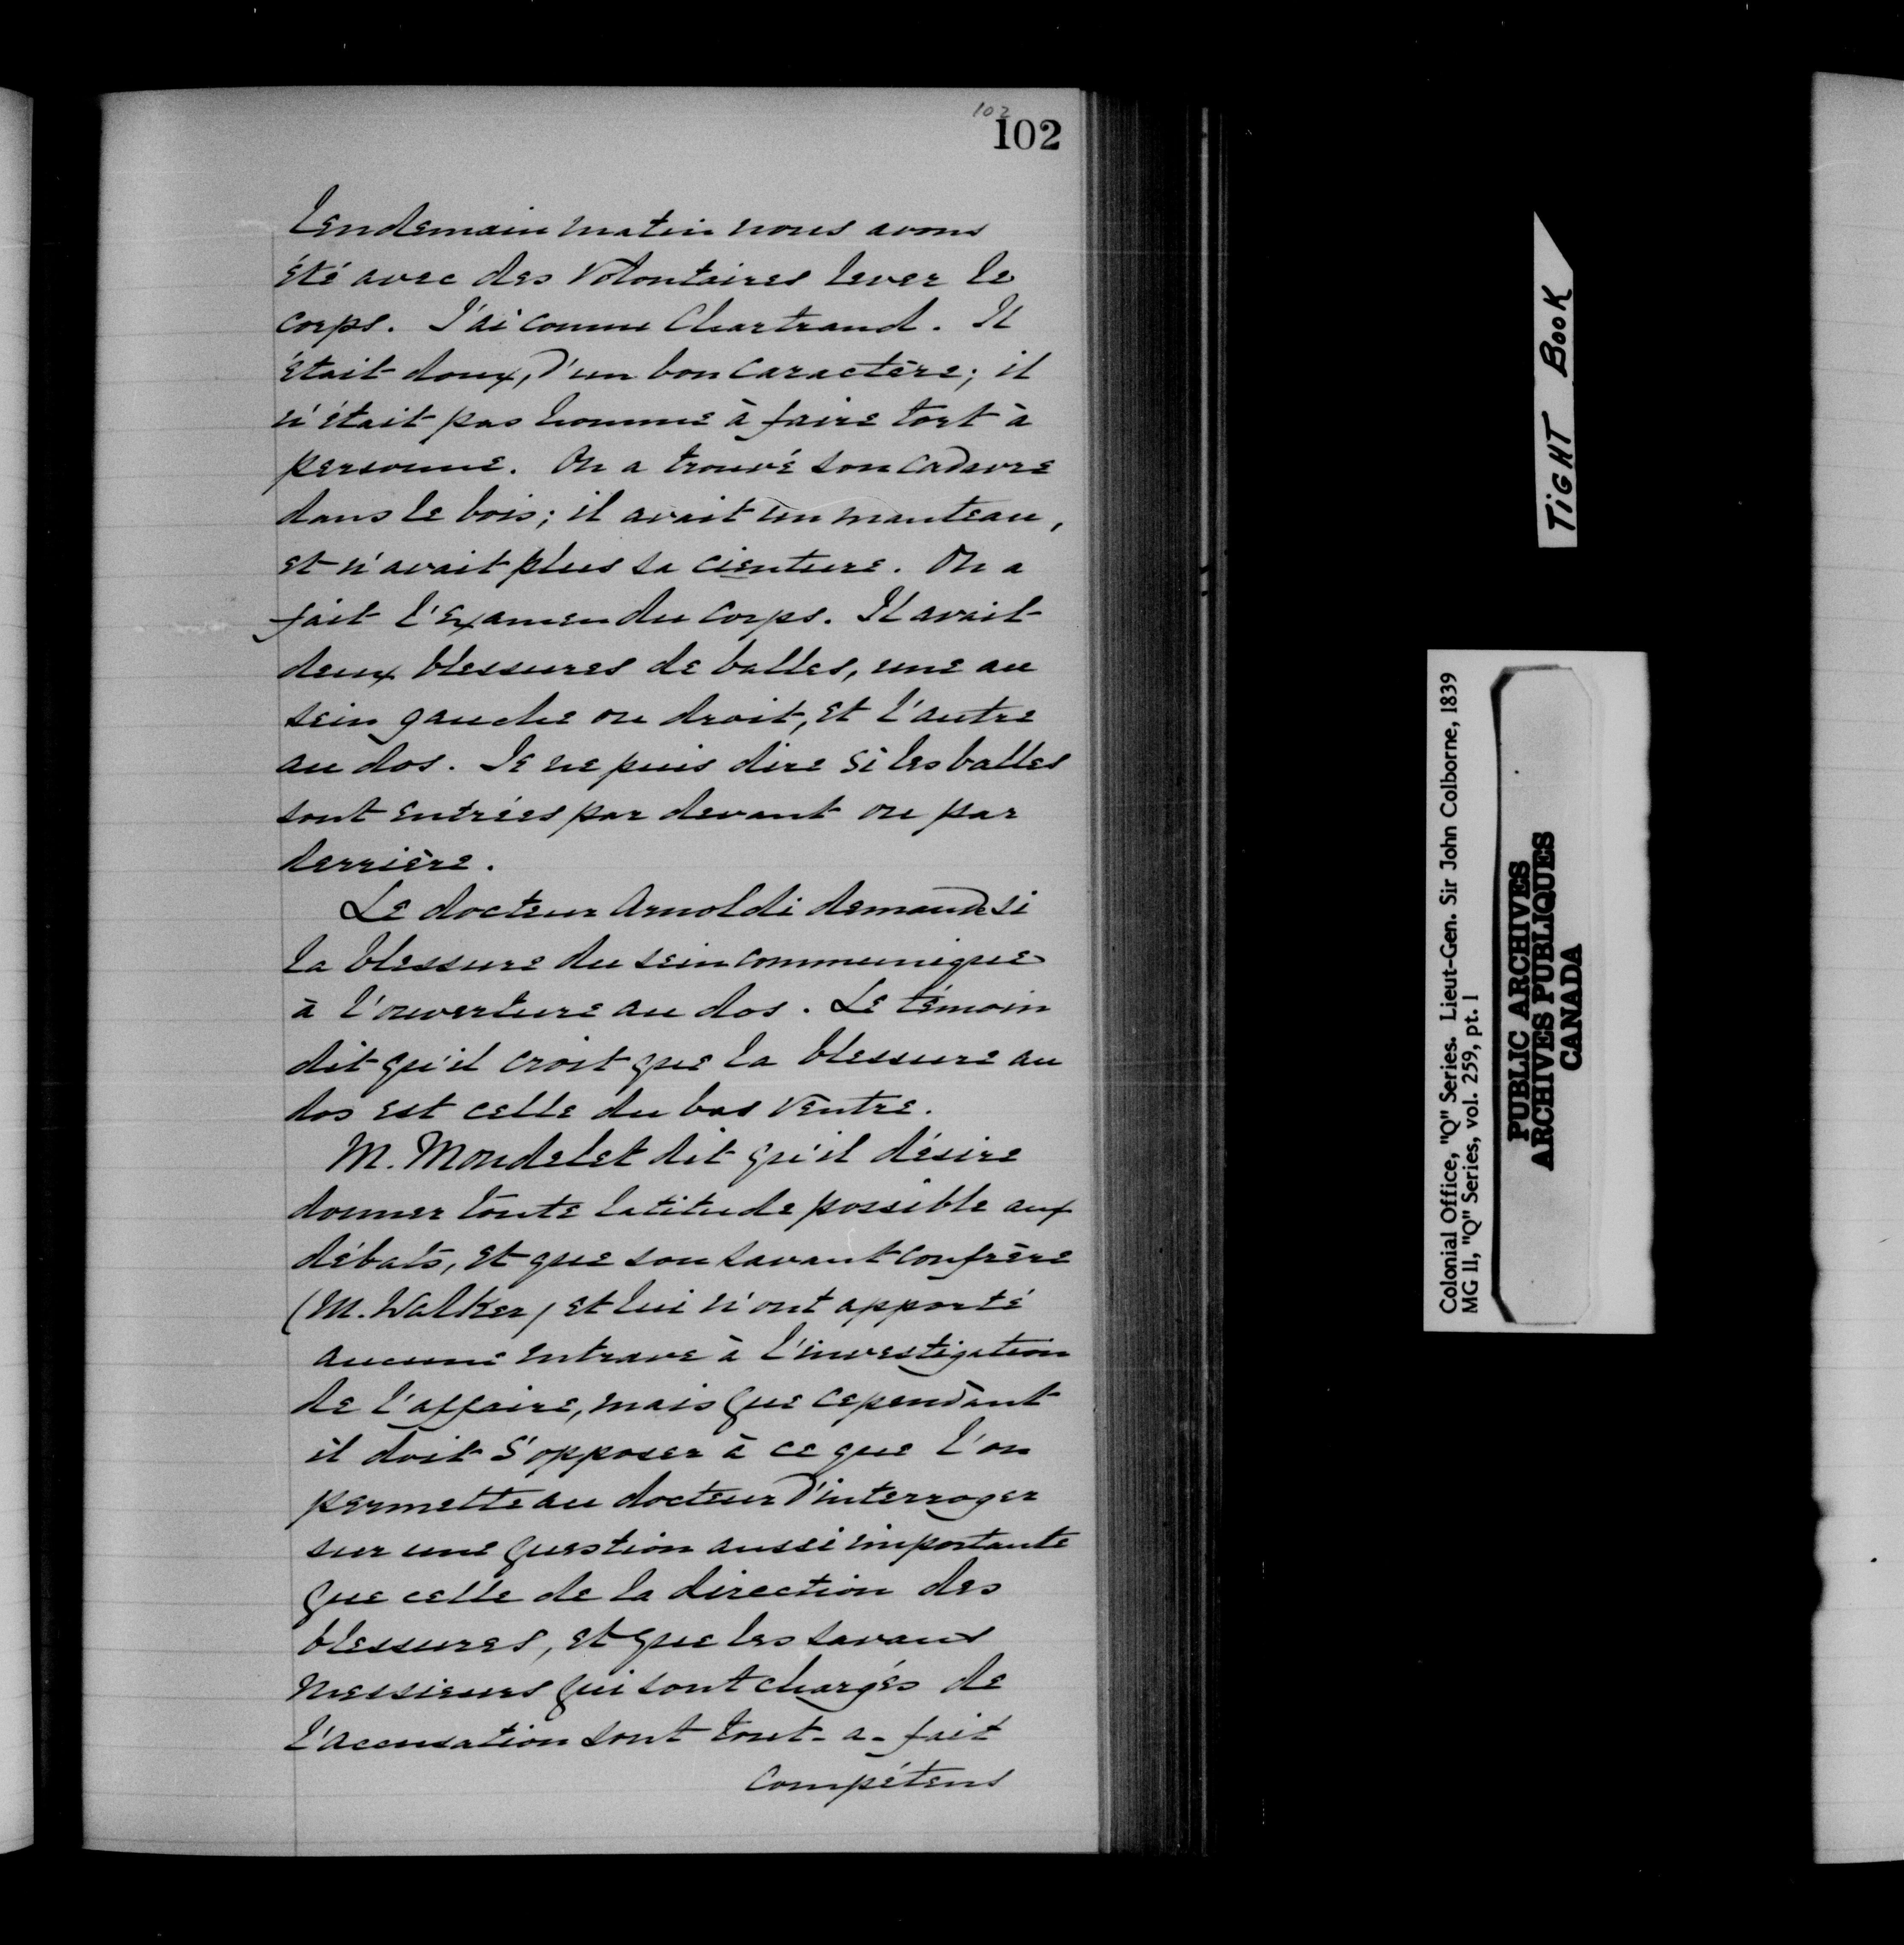 102
102
lendemain matin nous avons
été avec des Volontaires lever le
corps. J'ai connu Chartrand. Il
était doux, d'un bon caractère; il
n'était pas homme à faire tort à
personne. On a trouvé son cadavre
dans le bois; il avait un manteau,
et n'avait plus sa cienture. On a
fait l'examen du corps. Il avait
deux blessures de balles, une au
sein gauche ou droit, et l'autre
au dos. Je ne puis dire si les balles
sont entrées par devant ou par
derrière.
Le docteur Arnoldi demande si
la blessure du sein communique
à l'ouverture au dos. Le témoin
dit qu'il croit que la blessure au
dos est celle du bas ventre.
M. Mondelet dit qu'il désire
donner toute latitude possible aux
débats, et que son savant confrère
(M. Walker) et lui n'ont apporté
aucune entrave à l'investigation
de l'affaire, mais que cependant
il doit s'opposer à ce que l'on
permette au docteur d'interroger
sur une question aussi importante
que celle de la direction des
blessures, et que les savans
messieurs qui sont chargés de
l'accusation sont tout-a-fait
compétens
TIGHT BOOK
Colonial Office, "Q" Series. Lieut-Gen. Sir John Colborne, 1839
MG 11, "Q" Series, vol. 259, pt. 1
PUBLIC ARCHIVES
ARCHIVES PUBLIQUES
CANADA